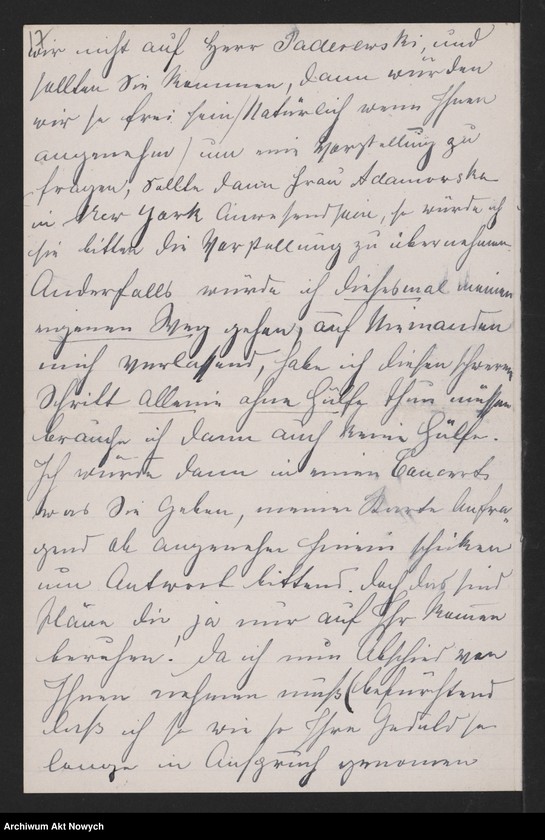 17
wir nicht auf Herr Paderewski, und
sollten Sie kommen, dann würden
wir so frei sein (Natürlich wenn Ihnen
angenehm) um eine Vorstellung zu
fragen, sollte dann Frau Adamowska
in New York Anwesend sein, so würde ich
sie bitten die Vorstellung zu übernehmen.
Anderfalls würde ich diehsmal meinen
eigenen Weg gehen, auf Niemanden
mich verlassend, habe ich diesen schweren
Schritt alleine ohne Hülfe thun müssen
brauche ich dann auch keine Hülfe.
Ich würde dann in einem Concert
was Sie Geben, meine Karte Anfra-
gend ob angenehm hinein schiken
um Antwort bittend. doch das sind
Pläne die ja nur auf Ihr kommen
beruhen! da ich nun Abschied von
Ihnen nehmen muß (befürchtend
daß ich so wie so Ihre Geduld so
lange in Anspruch genomen
Archiwum Akt Nowych